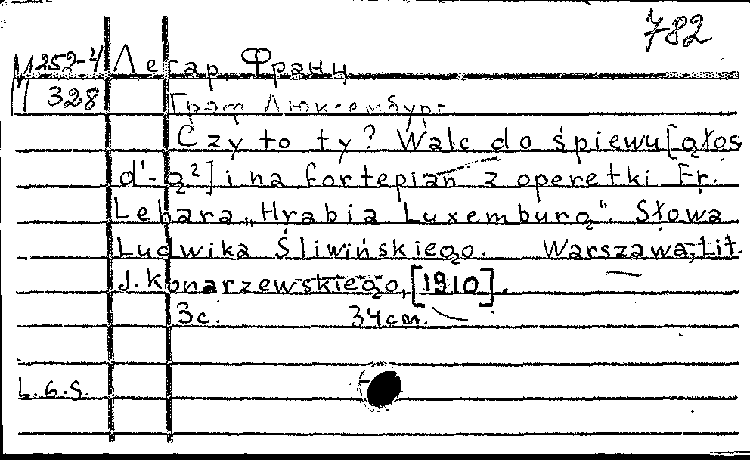 782
М 252-4 Легар, Франц
328 Граф Люксембург
Czy to ty? Walc do śpiewu [głos
d¹-g²] i na fortepian z operetki Fr.
Lehara „Hrabia Luxemburg". Słowa
Ludwika Śliwińskiego. Warszawa, Lit.
J. Konarzewskiego, [1910].
3c. 34cm.
L.G.S.